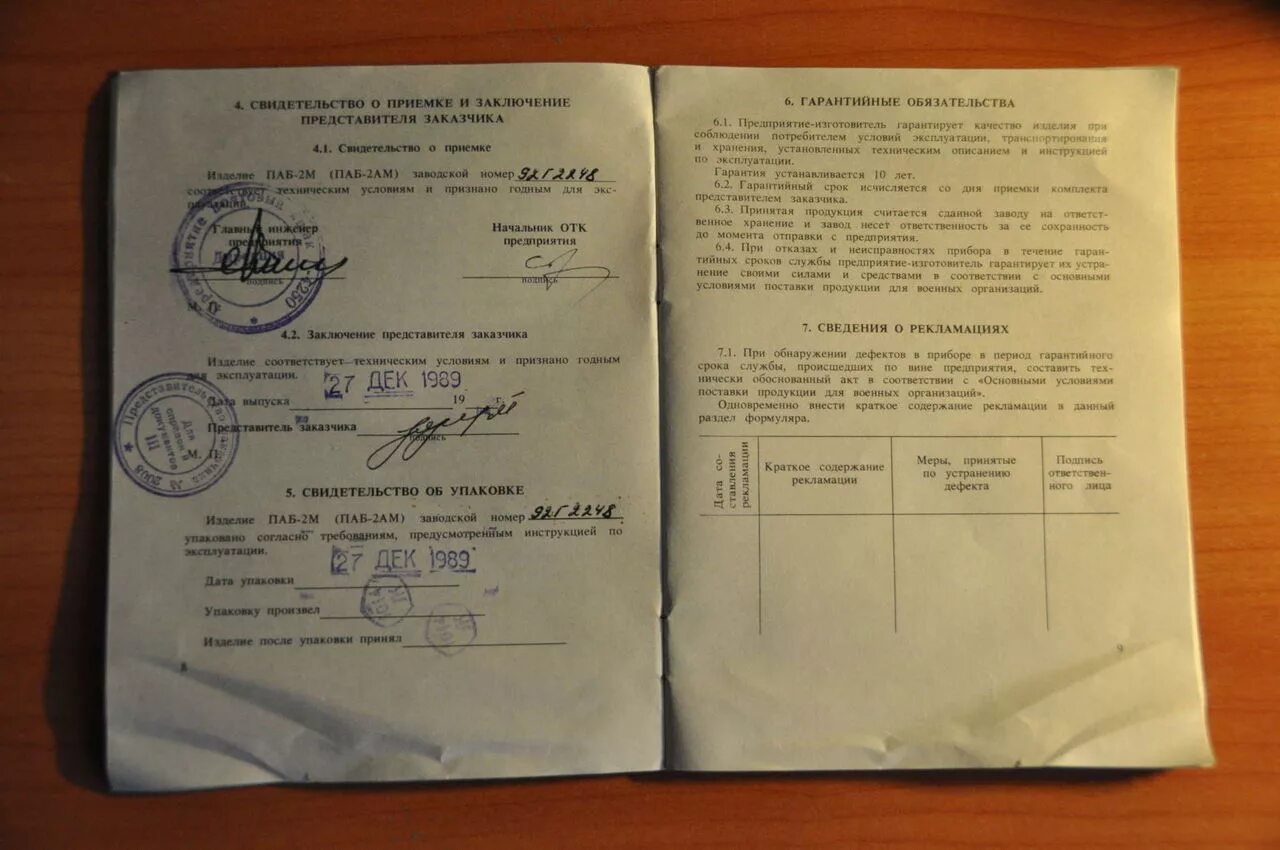 4. СВИДЕТЕЛЬСТВО О ПРИЕМКЕ И ЗАКЛЮЧЕНИЕ
ПРЕДСТАВИТЕЛЯ ЗАКАЗЧИКА
4.1. Свидетельство о приемке
Изделие ПАБ-2М (ПАБ-2АМ) заводской номер 92Г2248
соответствует техническим условиям и признано годным для экс-
плуатации.
Главный инженер
предприятия
подпись
Начальник ОТК
предприятия
подпись
М. П.
4.2. Заключение представителя заказчика
Изделие соответствует техническим условиям и признано годным
для эксплуатации.
27 ДЕК 1989
Дата выпуска 19 г.
Представитель заказчика
подпись
М. П.
Представительство заказчика № 2008
Для
справок и
документов
III
5. СВИДЕТЕЛЬСТВО ОБ УПАКОВКЕ
Изделие ПАБ-2М (ПАБ-2АМ) заводской номер 92Г2248
упаковано согласно требованиям, предусмотренным инструкцией по
эксплуатации.
27 ДЕК 1989
Дата упаковки
Упаковку произвел
Изделие после упаковки принял
8
6. ГАРАНТИЙНЫЕ ОБЯЗАТЕЛЬСТВА
6.1. Предприятие-изготовитель гарантирует качество изделия при
соблюдении потребителем условий эксплуатации, транспортирования
и хранения, установленных техническим описанием и инструкцией
по эксплуатации.
Гарантия устанавливается 10 лет.
6.2. Гарантийный срок исчисляется со дня приемки комплекта
представителем заказчика.
6.3. Принятая продукция считается сданной заводу на ответст-
венное хранение и завод несет ответственность за ее сохранность
до момента отправки с предприятия.
6.4. При отказах и неисправностях прибора в течение гаран-
тийных сроков службы предприятие-изготовитель гарантирует их устра-
нение своими силами и средствами в соответствии с основными
условиями поставки продукции для военных организаций.
7. СВЕДЕНИЯ О РЕКЛАМАЦИЯХ
7.1. При обнаружении дефектов в приборе в период гарантийного
срока службы, происшедших по вине предприятия, составить тех-
нически обоснованный акт в соответствии с «Основными условиями
поставки продукции для военных организаций».
Одновременно внести краткое содержание рекламации в данный
раздел формуляра.
Дата со-
ставления
рекламации
Краткое содержание
рекламации
Меры, принятые
по устранению
дефекта
Подпись
ответствен-
ного лица
9